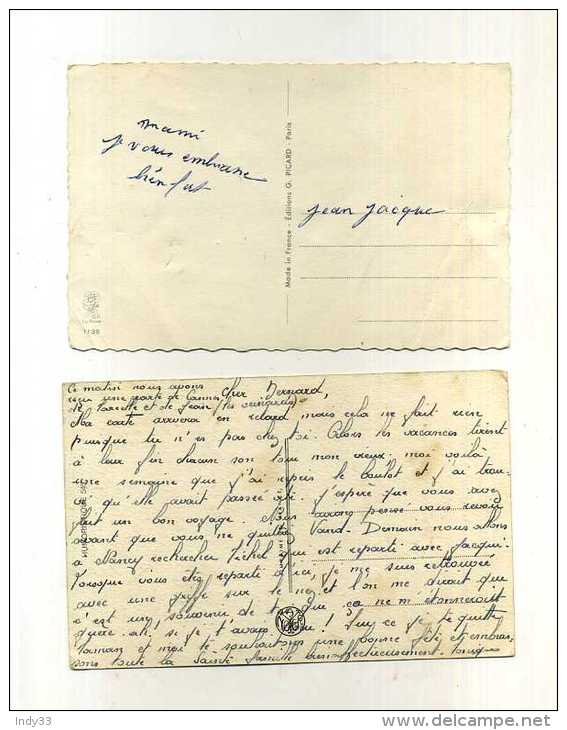 mami
je vous embrasse
bien fort
Made in France - Éditions G. PICARD - Paris
jean jacque
1138
Ce matin nous avons
reçu une carte de Cannes
Cher Bernard,
de Marcelle et de Jean (les veinards)
Ma carte arrivera en retard, mais cela ne fait rien
puisque tu n'es pas chez toi. Alors les vacances tirent
à leur fin chacun son tour mon vieux. moi voilà
une semaine que j'ai repris le boulot et j'ai trou-
vé qu'elle avait passée vite. J'espère que vous avez
fait un bon voyage. Nous avons pensé vous revoir
avant que vous ne quittiez Vand- Demain nous allons
à Nancy rechercher Michel qui est reparti avec Jacqui-
lorsque vous êtes reparti d'ici, je me suis retrouvée
avec une griffe sur le nez et l'on me dirait que
c'est un souvenir de toi que ça ne m'étonnerait
guère. ah, si je t'avais tenu ! Sur ce je te quitte
maman et moi te souhaitons une bonne fête et embras-
sons toute la Sainte famille bien affectueusement.
Indy33
delcampe.net